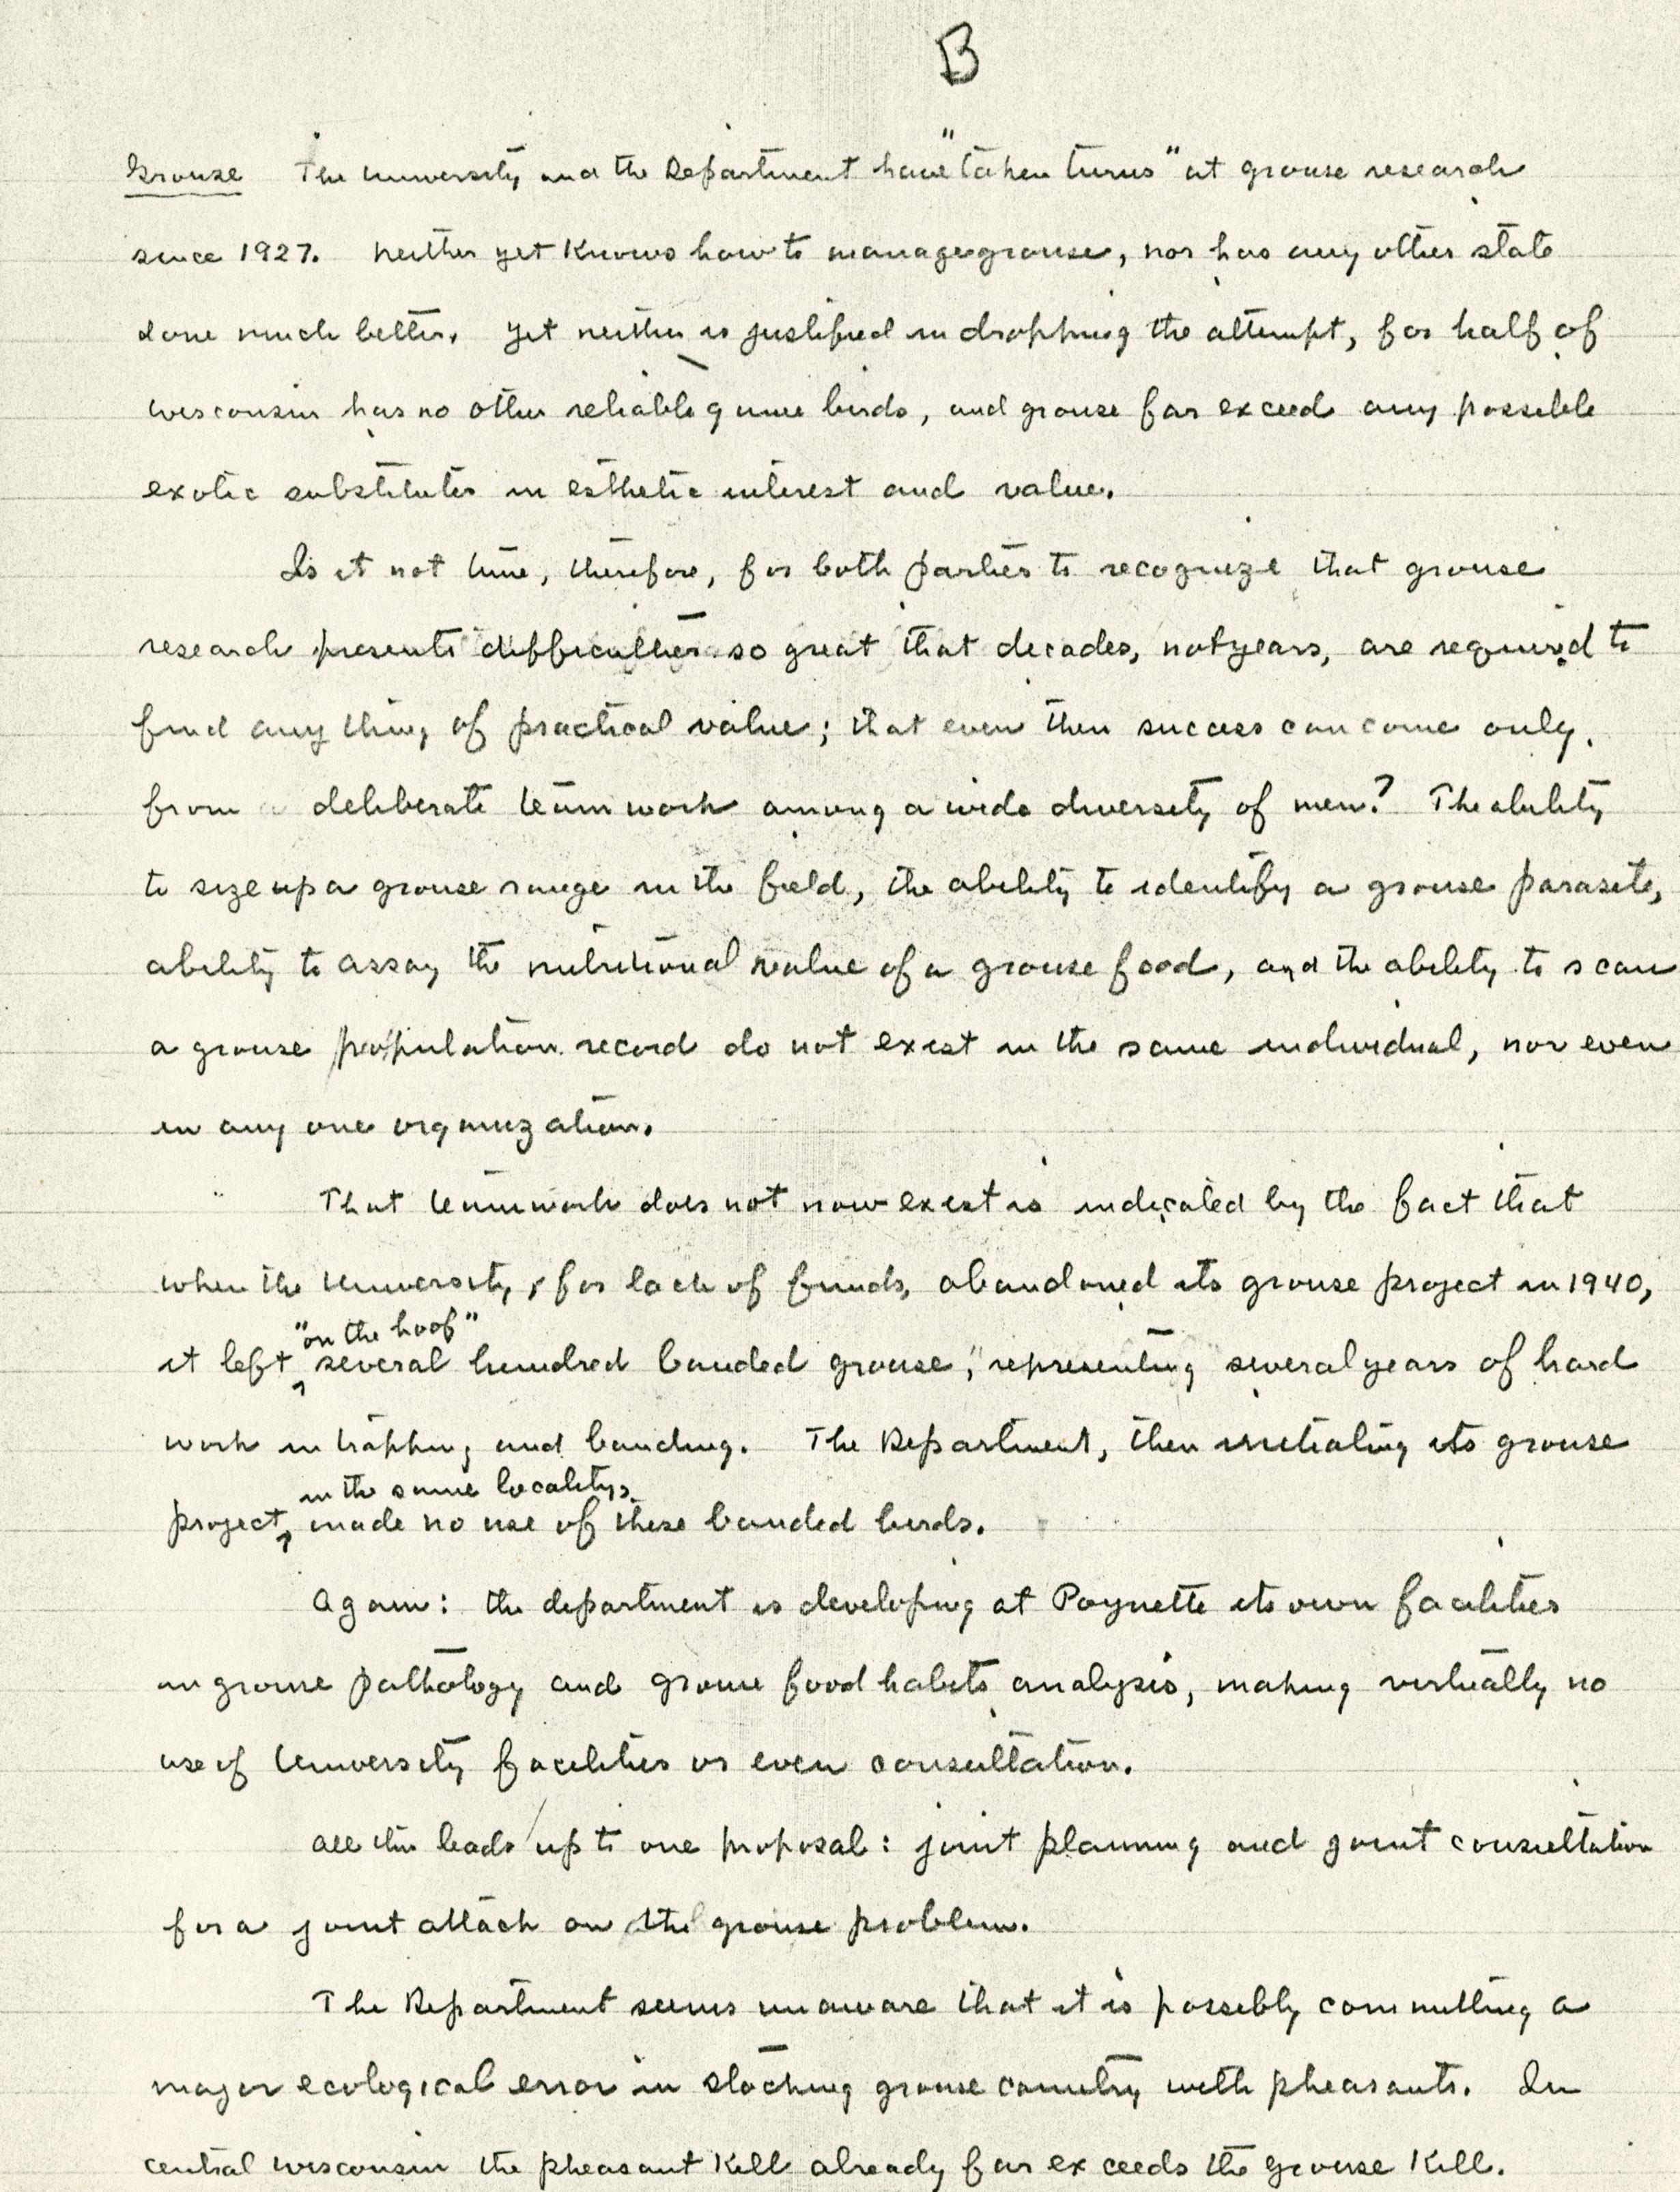 B
Grouse The University and the Department have "taken turns" at grouse research
since 1927. Neither yet knows how to manage grouse, nor has any other state
done much better. Yet neither is justified in dropping the attempt, for half of
Wisconsin has no other reliable game birds, and grouse far exceed any possible
exotic substitutes in esthetic interest and value.
Is it not time, therefore, for both parties to recognize that grouse
research presents difficulties so great that decades, not years, are required to
find any thing of practical value; that even then success can come only
from deliberate teamwork among a wide diversity of men? The ability
to size up a grouse range in the field, the ability to identify a grouse parasite,
ability to assay the nutritional value of a grouse food, and the ability to scan
a grouse population record do not exist in the same individual, nor even
in any one organization.
That teamwork does not now exist is indicated by the fact that
when the University, for lack of funds, abandoned its grouse project in 1940,
"on the hoof"
it left several hundred banded grouse, representing several years of hard
work in trapping and banding. The Department, then initiating its grouse
in the same locality,
project, made no use of these banded birds.
Again: the department is developing at Poynette its own facilities
in grouse pathology and grouse food habits analysis, making virtually no
use of University facilities or even consultation.
All this leads up to one proposal: joint planning and joint consultation
for a joint attack on the grouse problem.
The Department seems unaware that it is possibly committing a
major ecological error in stocking grouse country with pheasants. In
central Wisconsin the pheasant kill already far exceeds the grouse kill.